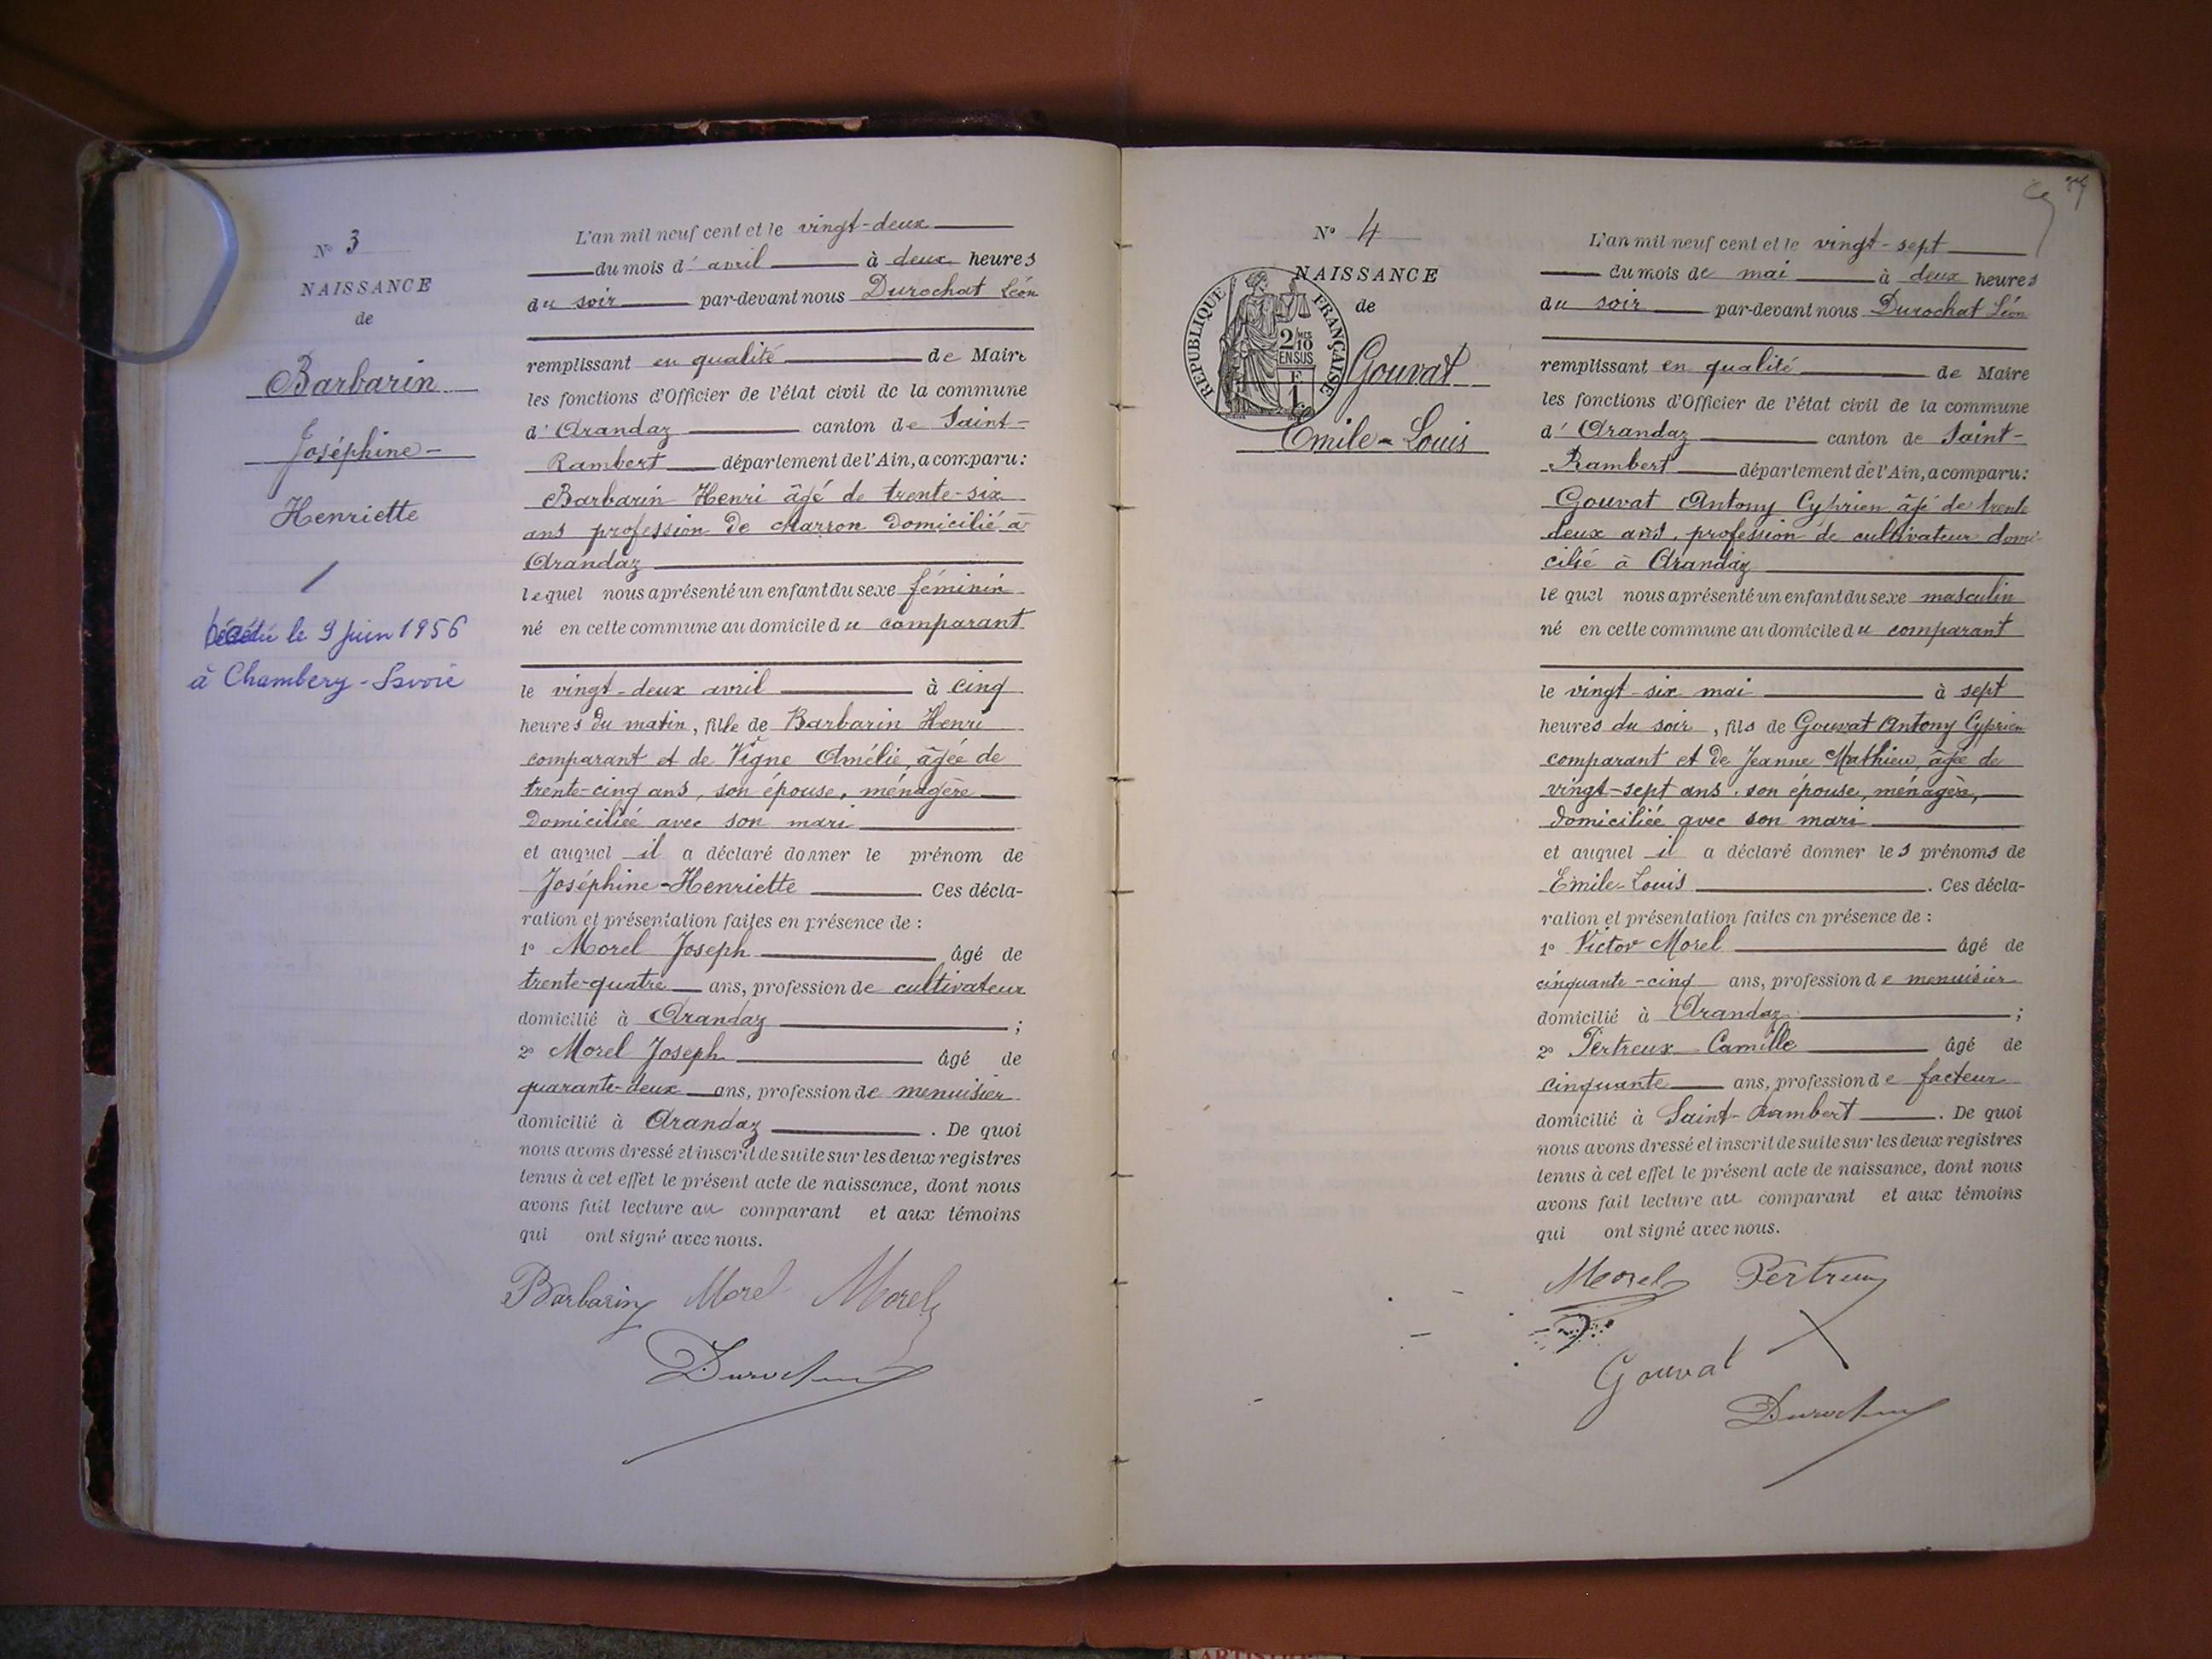 N° 3
NAISSANCE
de
Barbarin
Joséphine-
Henriette
Décédée le 9 juin 1956
à Chambery-Savoie
L'an mil neuf cent et le vingt-deux
du mois d'avril à deux heures
du soir par-devant nous Durochat Léon
remplissant en qualité de Maire
les fonctions d'Officier de l'état civil de la commune
d'Arandaz canton de Saint-
Rambert département de l'Ain, a comparu:
Barbarin Henri âgé de trente-six
ans profession de charron domicilié à
Arandaz
lequel nous a présenté un enfant du sexe féminin
né en cette commune au domicile du comparant
le vingt-deux avril à cinq
heures du matin, fille de Barbarin Henri
comparant et de Vigne Amélie, âgée de
trente-cinq ans, son épouse, ménagère
domiciliée avec son mari
et auquel il a déclaré donner le prénom de
Joséphine-Henriette Ces décla-
ration et présentation faites en présence de :
1° Morel Joseph âgé de
trente-quatre ans, profession de cultivateur
domicilié à Arandaz ;
2° Morel Joseph âgé de
quarante-deux ans, profession de menuisier
domicilié à Arandaz . De quoi
nous avons dressé et inscrit de suite sur les deux registres
tenus à cet effet le présent acte de naissance, dont nous
avons fait lecture au comparant et aux témoins
qui ont signé avec nous.
Barbarin Morel Morel
Durochat
N° 4
NAISSANCE
de
RÉPUBLIQUE FRANÇAISE
2/10 EN SUS
Gouvat
Emile-Louis
L'an mil neuf cent et le vingt-sept
du mois de mai à deux heures
du soir par-devant nous Durochat Léon
remplissant en qualité de Maire
les fonctions d'Officier de l'état civil de la commune
d'Arandaz canton de Saint-
Rambert département de l'Ain, a comparu:
Gouvat Antony Cyprien âgé de trente
deux ans, profession de cultivateur domi-
cilié à Arandaz
le quel nous a présenté un enfant du sexe masculin
né en cette commune au domicile du comparant
le vingt-six mai à sept
heures du soir, fils de Gouvat Antony Cyprien
comparant et de Jeanne Mathieu, âgée de
vingt-sept ans, son épouse, ménagère,
domiciliée avec son mari
et auquel il a déclaré donner les prénoms de
Emile-Louis . Ces décla-
ration et présentation faites en présence de :
1° Victor Morel âgé de
cinquante-cinq ans, profession de menuisier
domicilié à Arandaz ;
2° Pertreux Camille âgé de
cinquante ans, profession de facteur
domicilié à Saint-Rambert . De quoi
nous avons dressé et inscrit de suite sur les deux registres
tenus à cet effet le présent acte de naissance, dont nous
avons fait lecture au comparant et aux témoins
qui ont signé avec nous.
Morel Pertreux
Gouvat
Durochat